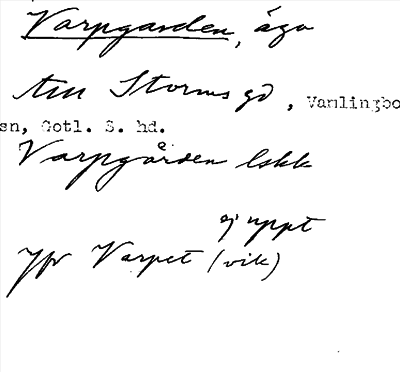 Varpgarden, ägo
till Storms gd, Vamlingbo
sn, Gotl. S. hd.
Varpgården lskk
ej uppt
Jfr Varpet (vik)